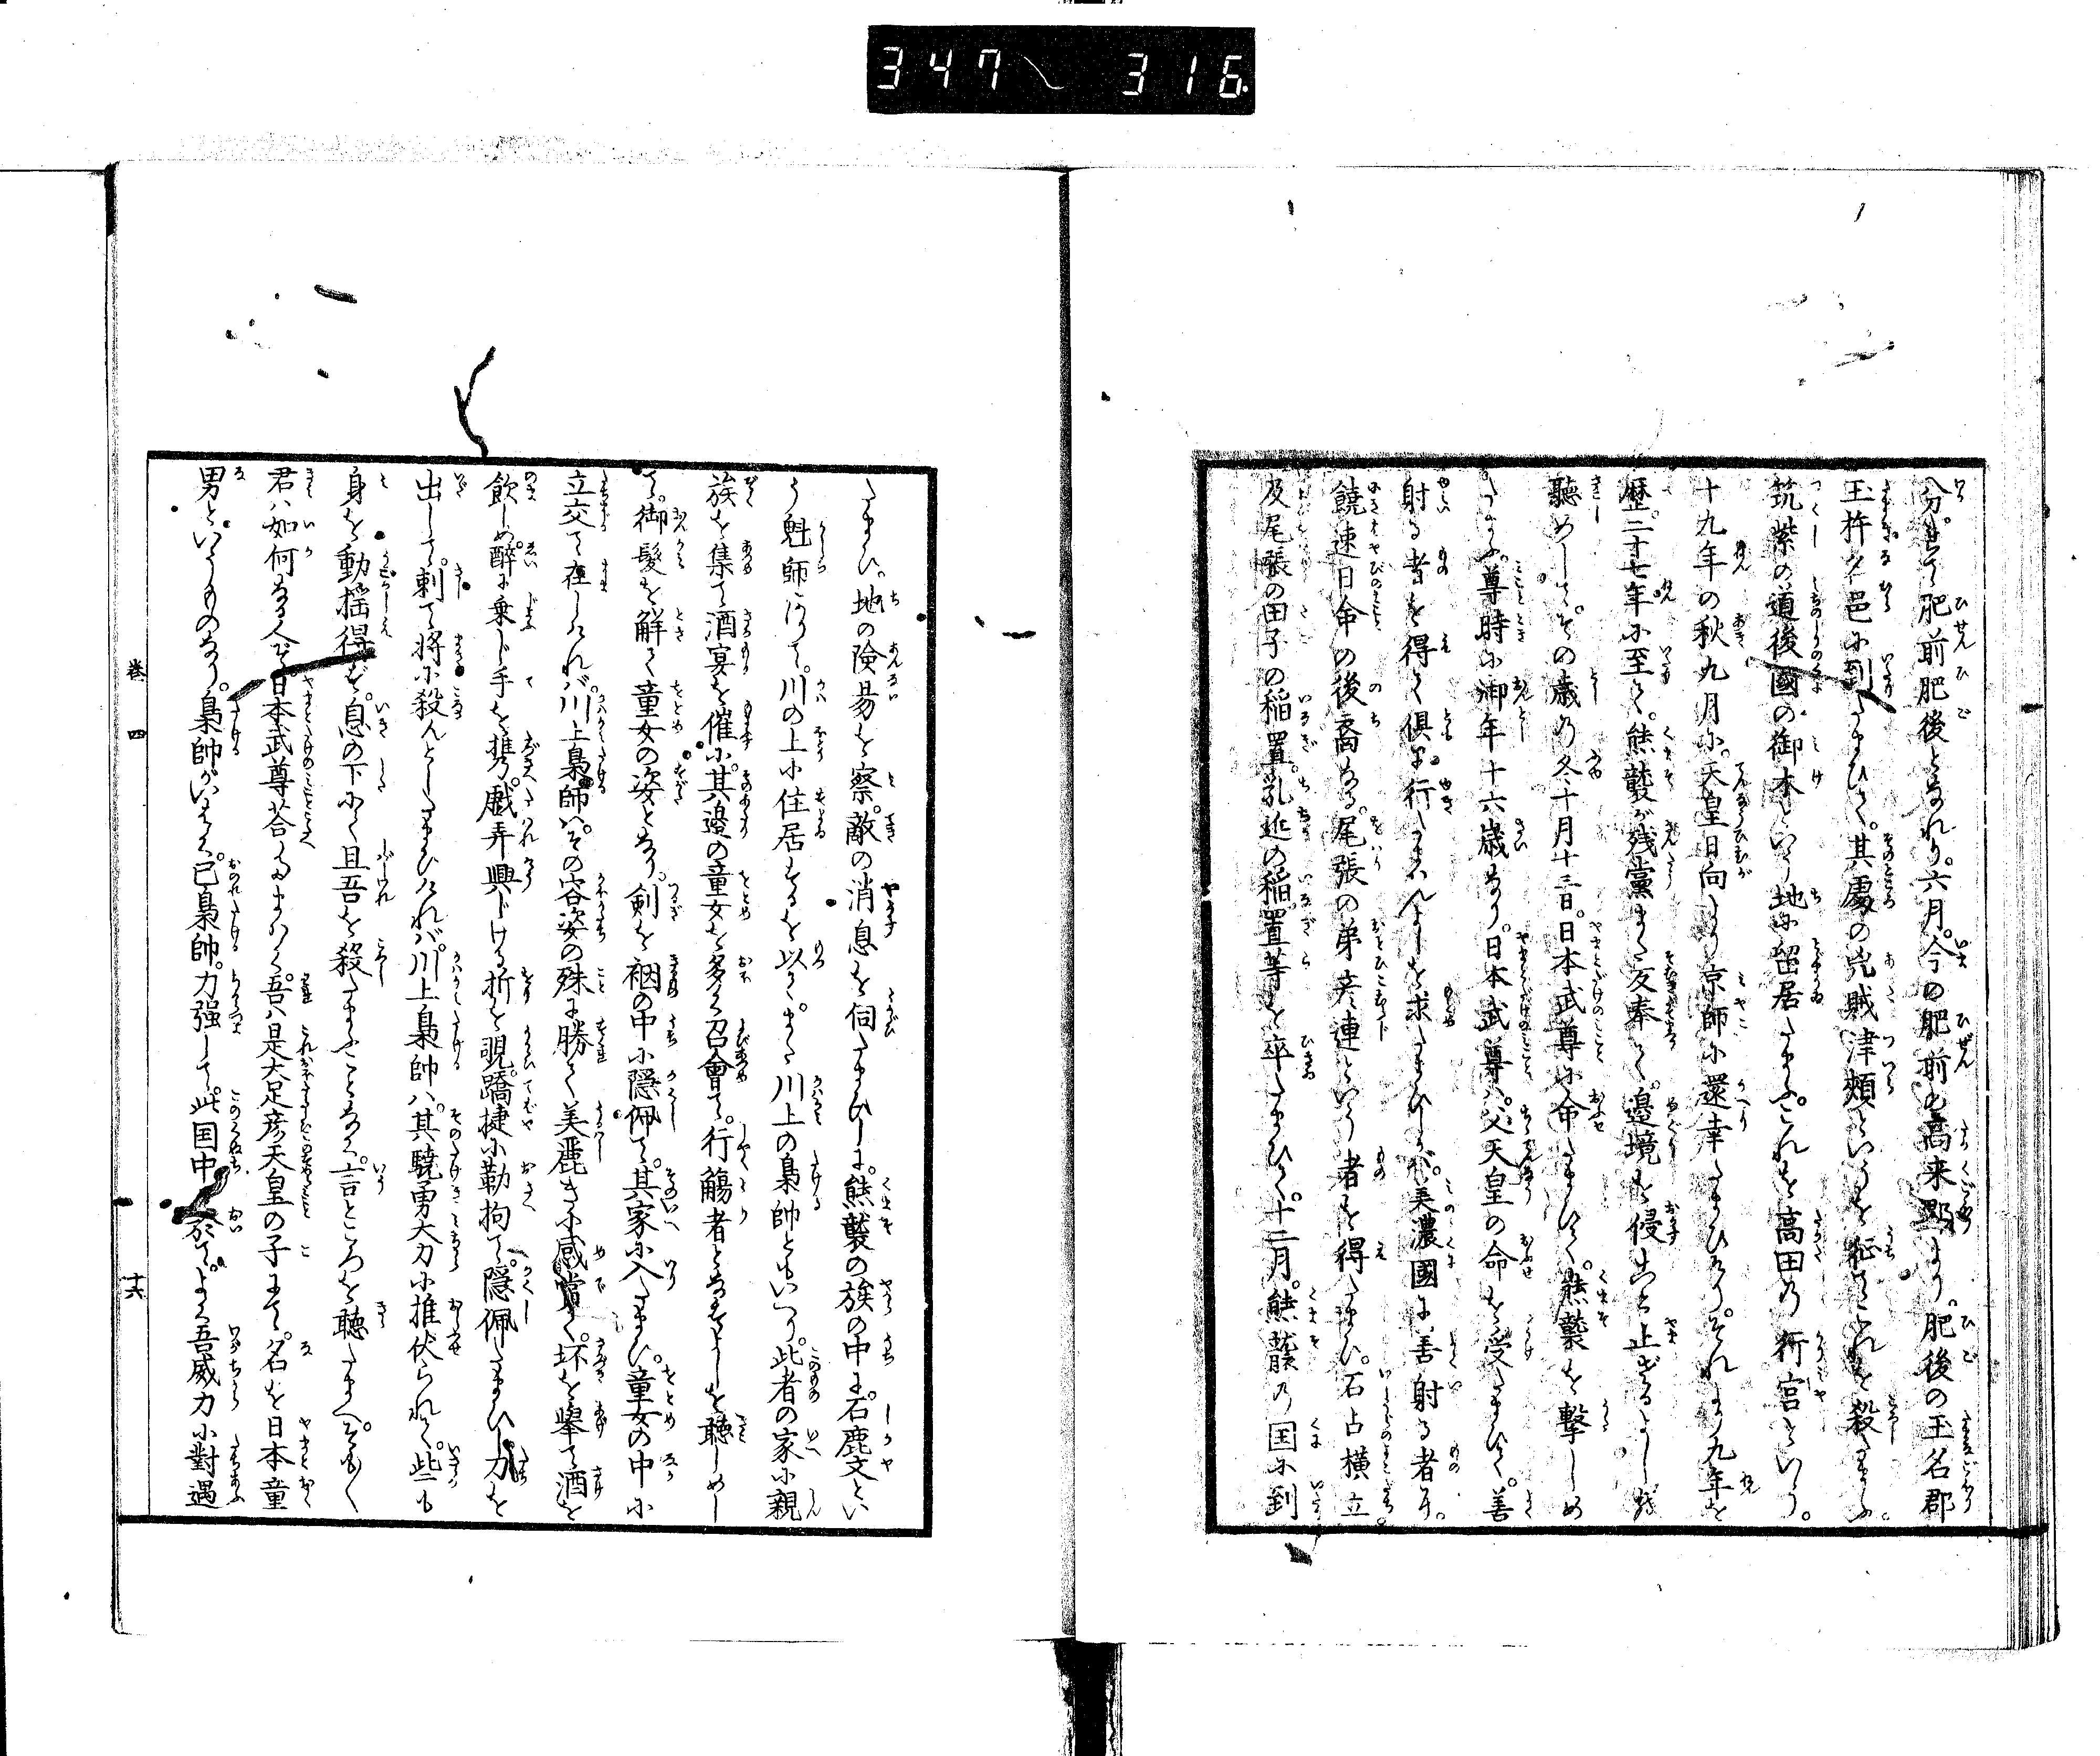 347 316
分せて肥前肥後となれり。六月。今の肥前の高来縣より。肥後の玉名郡
玉杵名邑に到たまひて。其處の兇賊津頰といふを征てこれを殺たまふ。
筑紫の道後國の御木といふ地に留居たまふ。これを高田の行宮といふ。
十九年の秋九月に。天皇日向より京師に還幸たまひけり。それより九年を
歴。二十七年に至て。熊襲が残黨また反奉て。邉境を侵こと止ざるよしを
聽めして。その歳の冬十月十三日。日本武尊に命たまひて。熊襲を撃しめ
たまふ。尊時に御年十六歳なり。日本武尊ハ。父天皇の命を受たまひて。善
射る者を得て倶に行たまはんよしを求たまひしが。美濃國に善射る者有。
饒速日命の後裔なる。尾張の弟彦連といふ者を得たまひ。石占横立
及尾張の田子の稲置。乳近の稲置等を卒たまひて。十二月。熊襲の国に到
たまひ。地の険易を察。敵の消息を伺たまひしに。熊襲の族の中に。石鹿文とい
う魁師ありて。川の上に住居するを以て。また川上の梟帥ともいへり。此者の家に親
族を集て酒宴を催に。其邉の童女を多く召會て。行觴者となすよしを聽しめし
て。御髪を解て童女の姿となり。剣を裀の中に隠佩て。其家に入たまひ。童女の中に
立交て在しけれバ。川上梟師ハ。その容姿の殊に勝て美麗きに感賞て。坏を擧て酒を
飲しめ。醉に乗じ手を携。戯弄興じける折を覗。蹻捷に勒拘て。隠佩たまひし力を
出して。刺て將に殺んとしたまひけれバ。川上梟帥ハ。其驍勇大力に推伏られて。些も
身を動揺得ず。息の下にて且吾を殺たまふことなく。言ところを聽たまへ。そも〱
君ハ如何なる人ぞ。日本武尊荅たまはく。吾ハ是大足彦天皇の子にて。名を日本童
男といふものなり。梟帥がいはく。已梟帥。力強して。此国中に於て。よく吾威力に對遇
巻四
十六